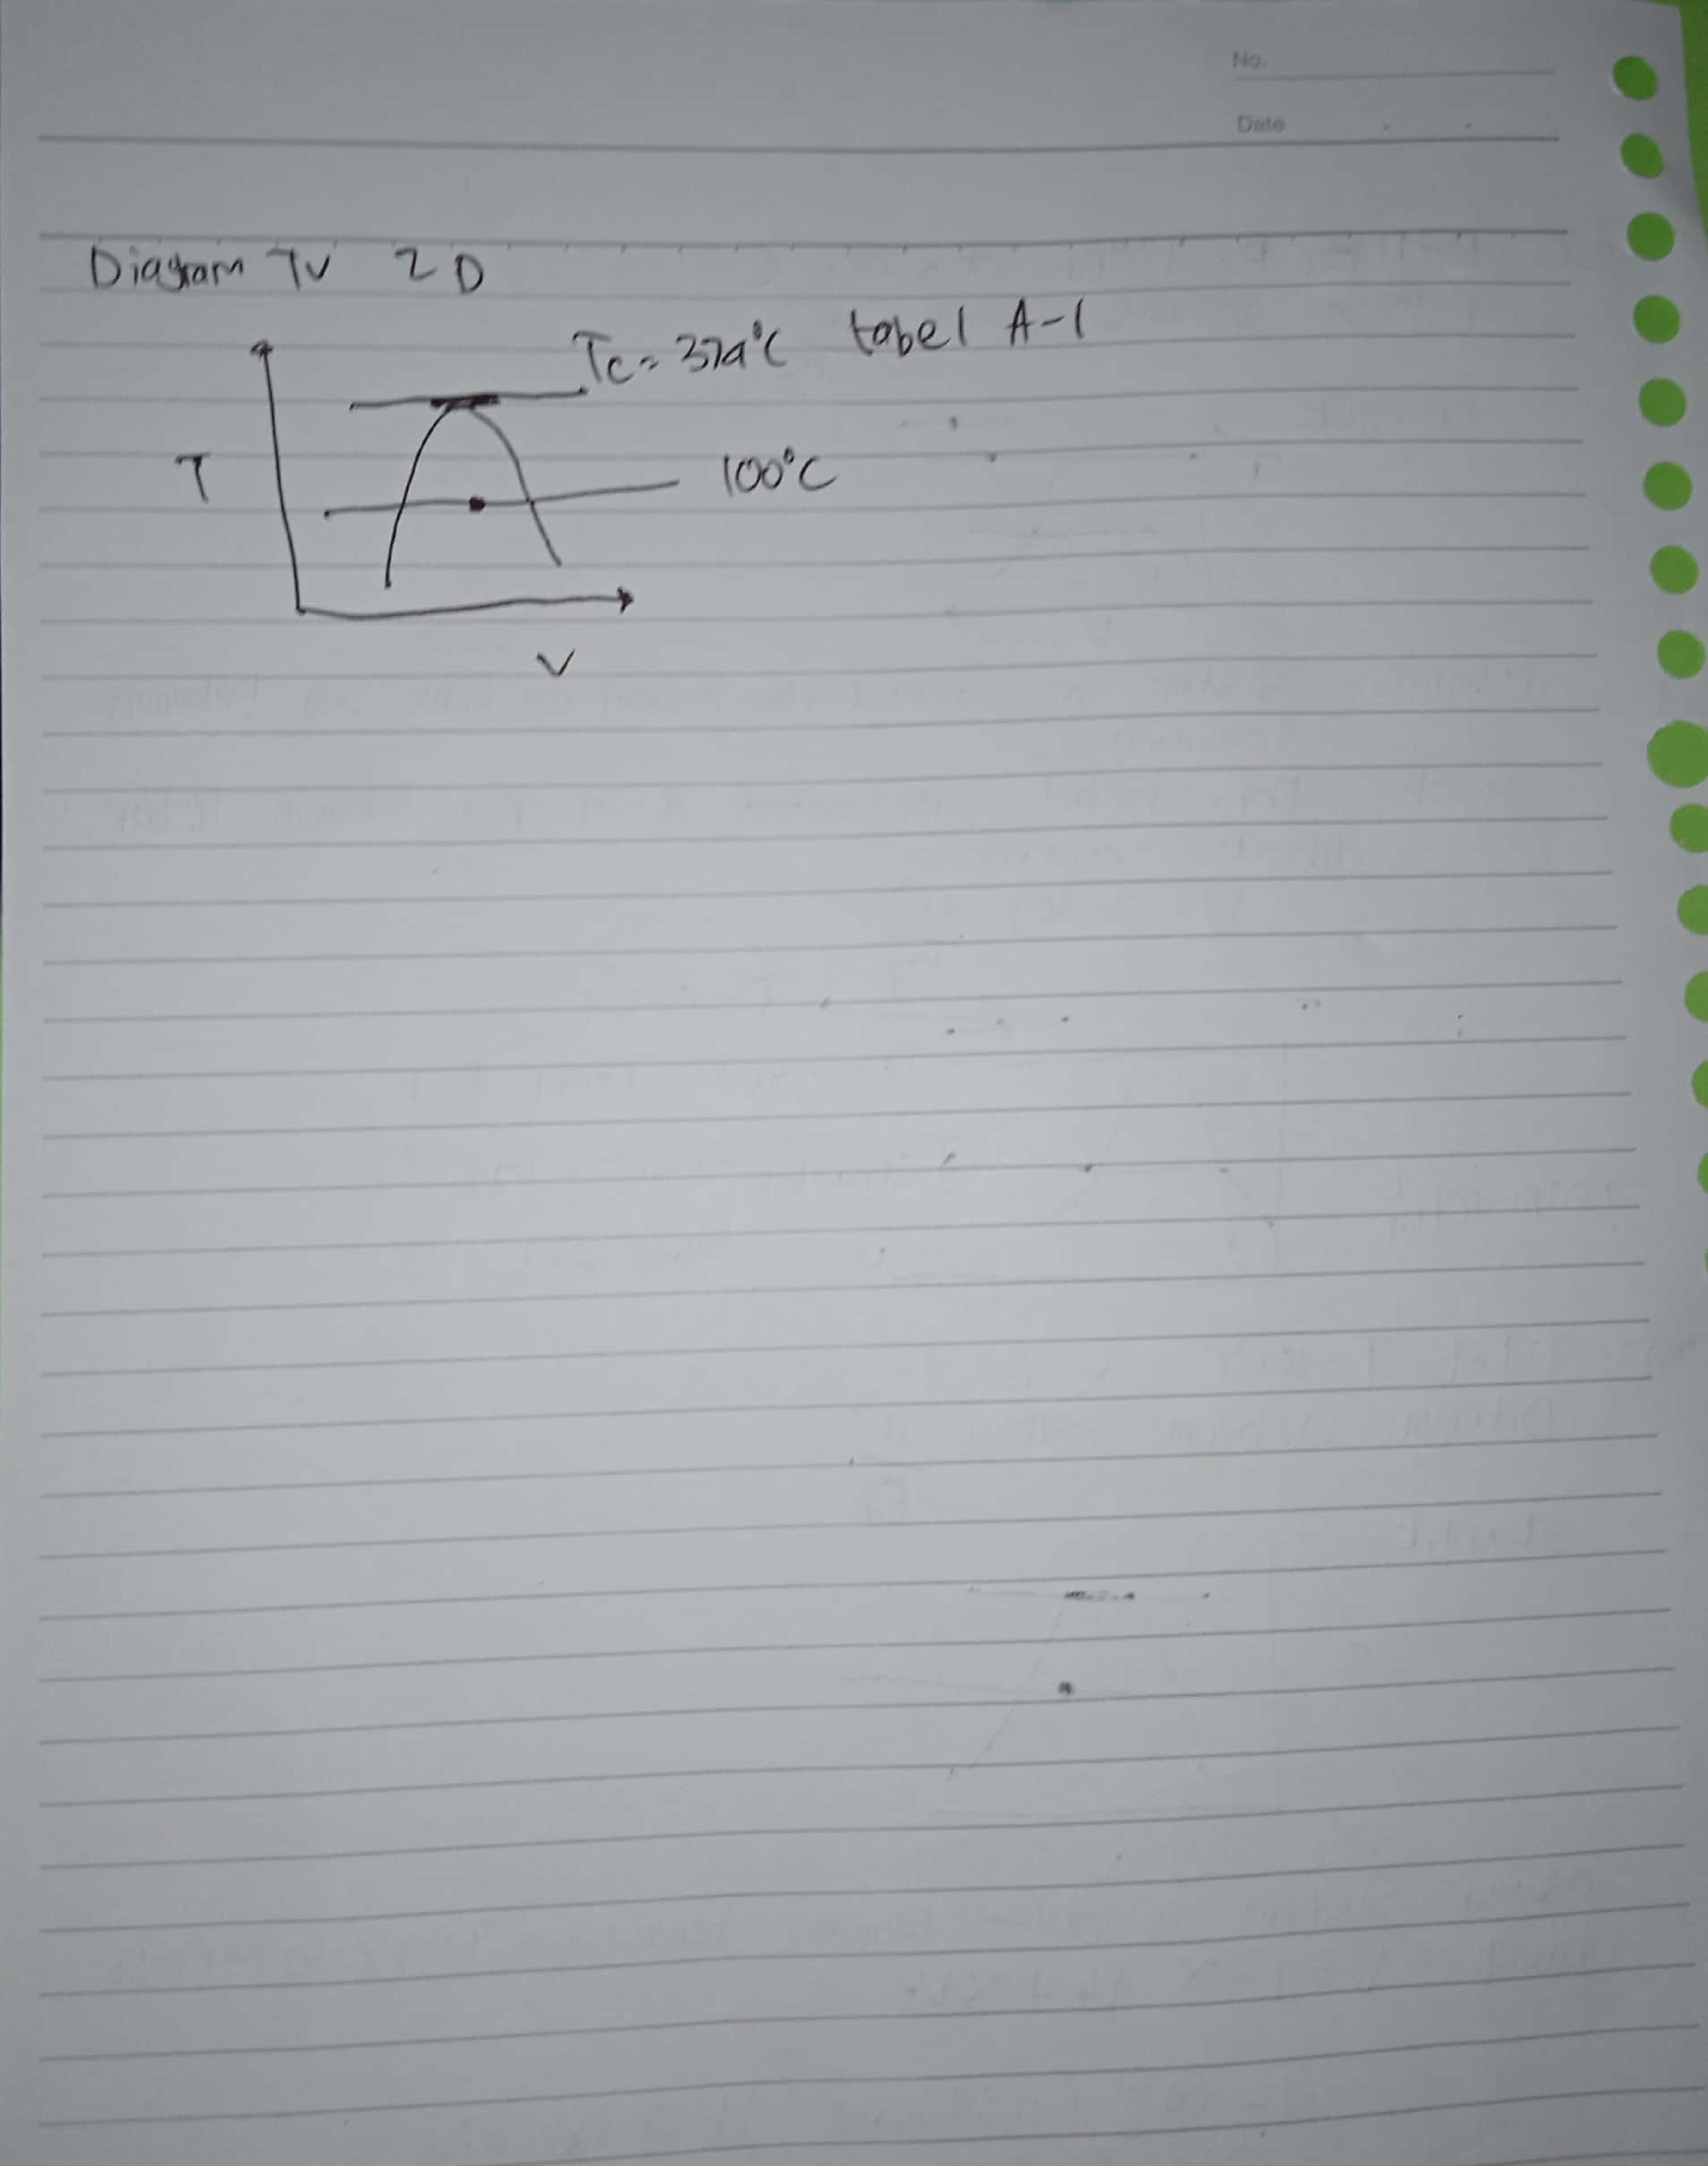 No.
Date
Diagram Tv 2D
Tc = 374°C tabel A-1
T
100°C
V